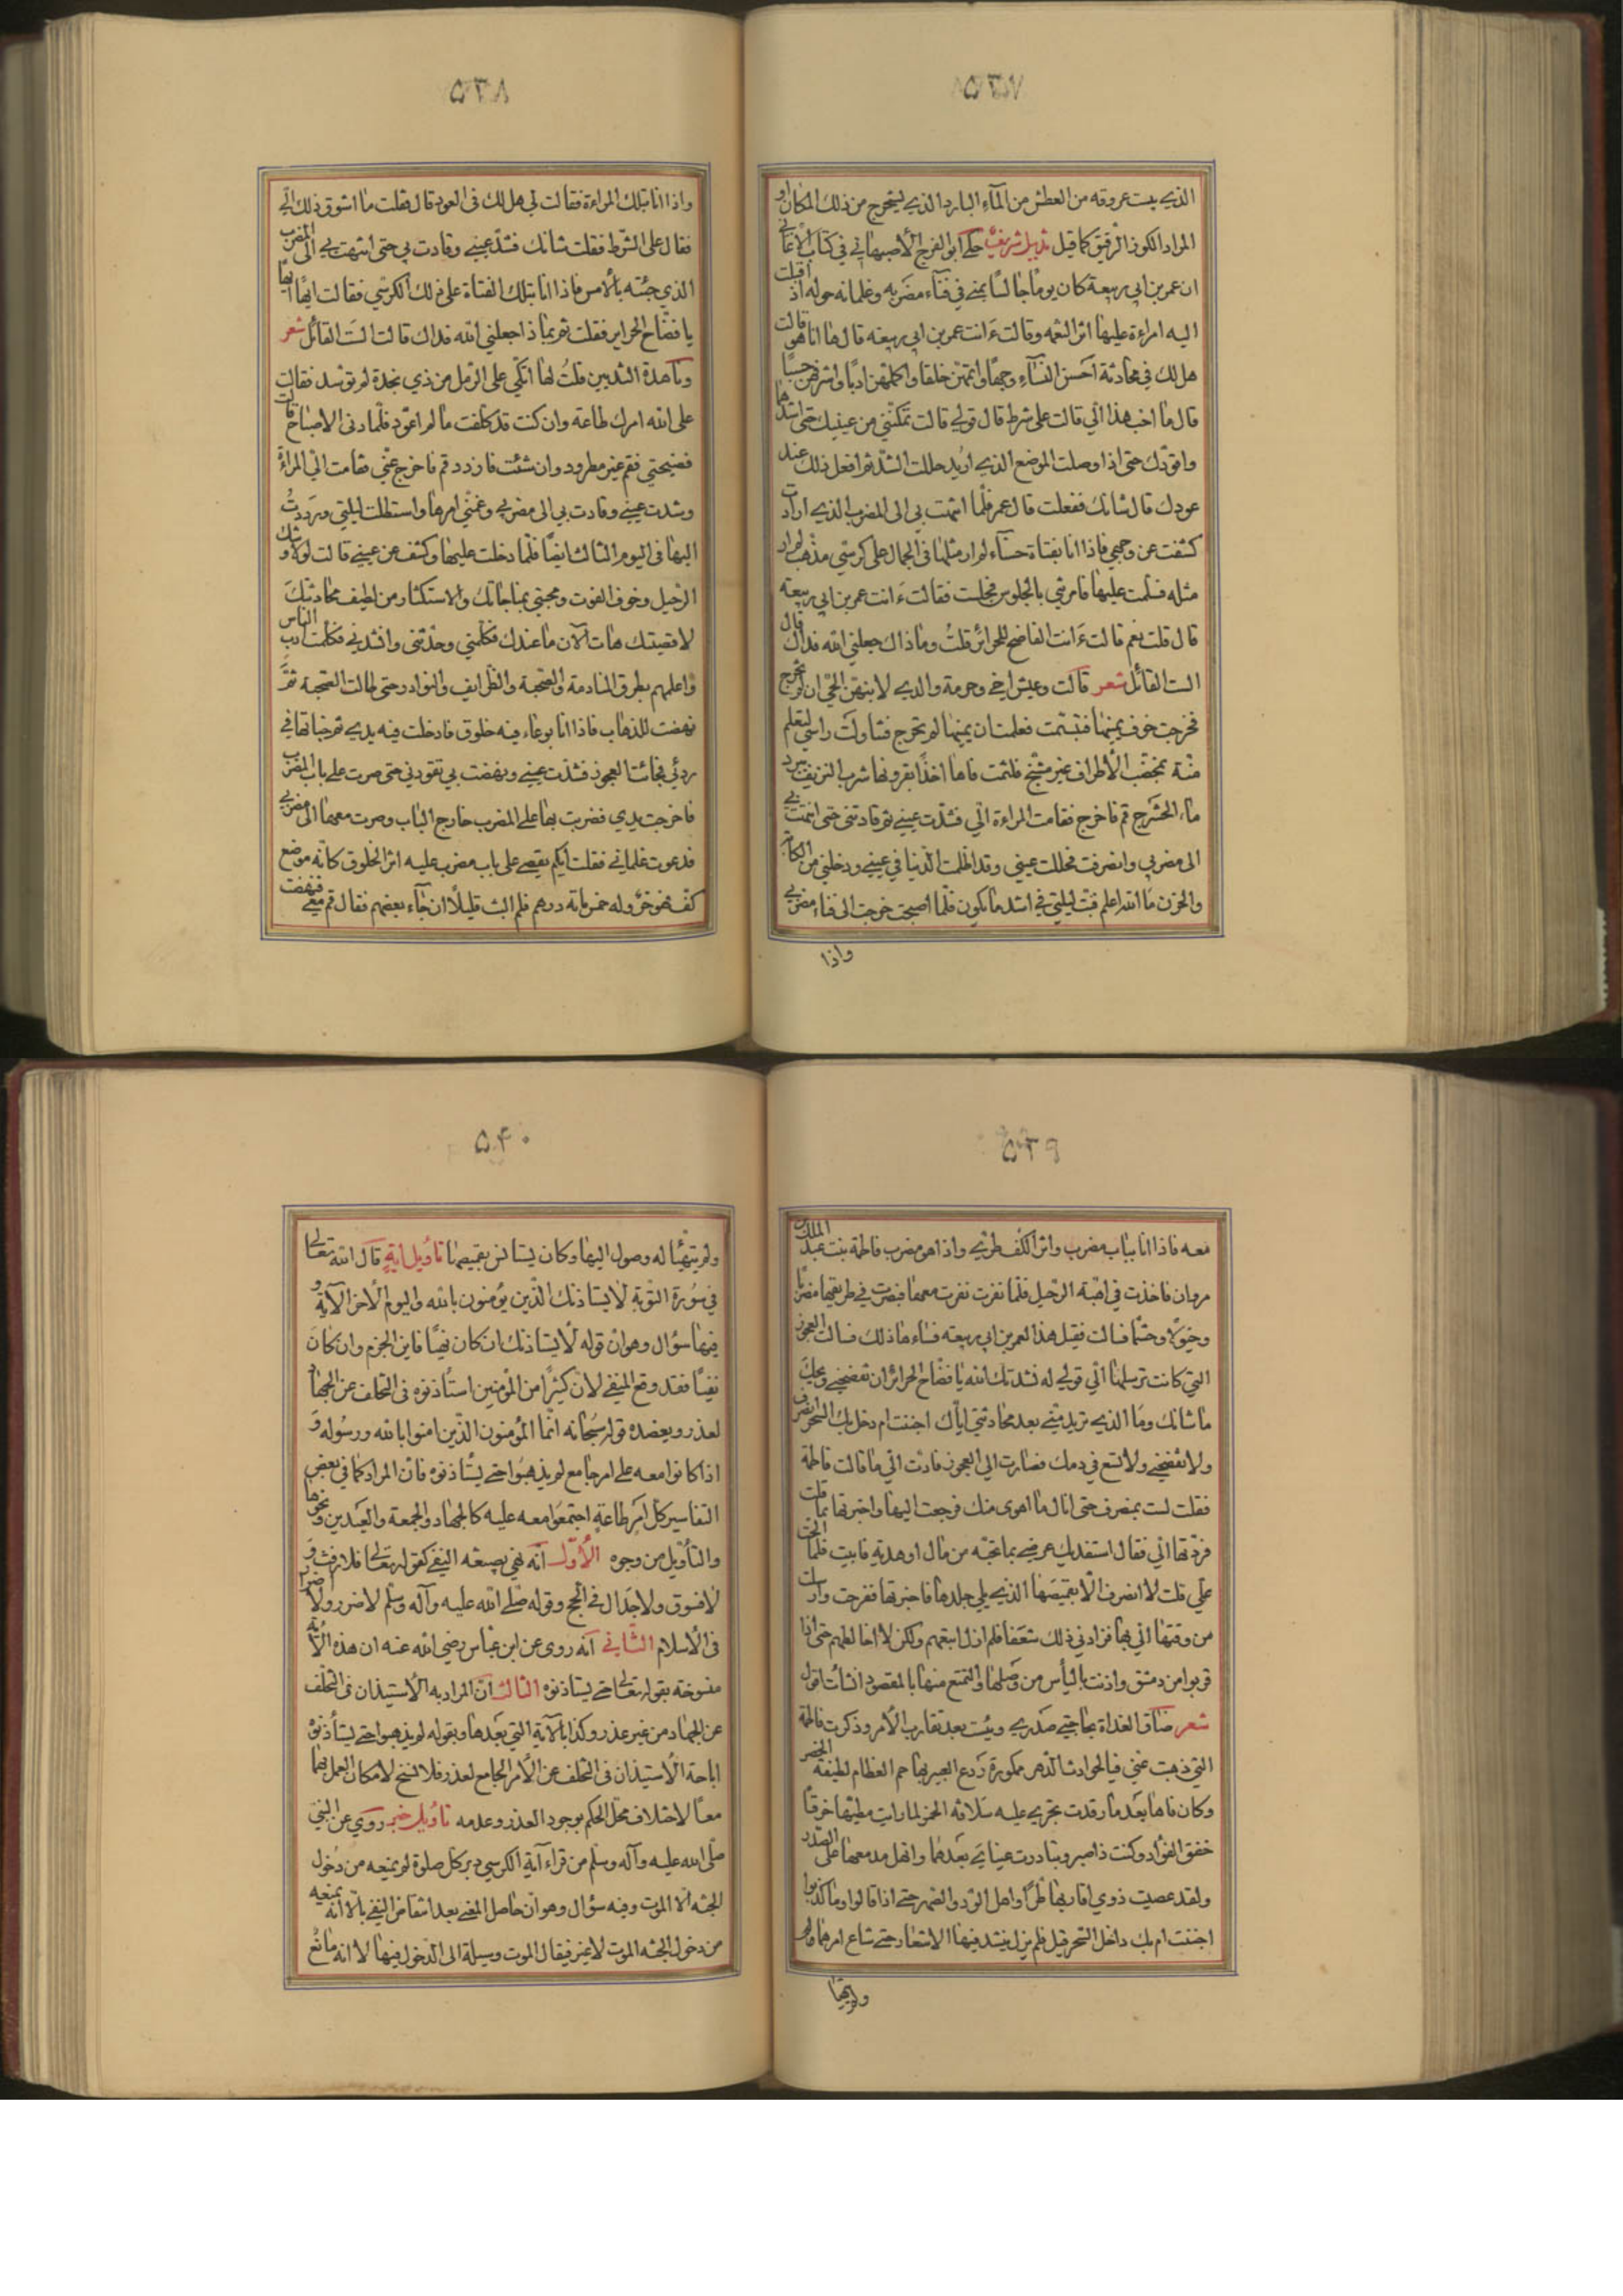 ٥٣٧
الذي يبست عروقه من العطش من المآء البارد الذي ليتخرج من ذلك المكان او
المراد الكوز الرقيق كما قيل تذييل شريف حكى ابو الفرج الأصبهاني في كتاب الأغاني
ان عمر بن ابي ربيعة كان يوماً جالساً بمنى في فنآء مضربه وغلمانه حوله اذ اقبلت
اليه امراءة عليها اثر النعمه وقالت ءَانت عمر بن ابي ربيعه قال ها انا هو قالت
هل لك في محادثة احسن النسآء وجهاً واتمهن خلقا واكملهن ادباً واشرفهن حسباً
قال ما احب هذا الي قالت على شرط قال قولي قالت تمكنني من عينيك حتى اشدها
واقودك حتى اذا وصلت الموضع الذي اريد حللت الشد ثم افعل ذلك عند
عودك قال شانك ففعلت قال عمر فلما انتهت بي الى المضرب الذي ارادت
كشفت عن وجهي فاذا انا بفتاة حسنآء لم ار مثلها في الجمال على كرسي مذهب لم ار
مثله فسلمت عليها فامرتني بالجلوس فجلست فقالت ءَانت عمر بن ابي ربيعه
قال قلت نعم قالت ءَانت الفاضح للحرائر قلتُ وما ذاك جعلني الله فداك قال
الست القائل شعر قالت وعيش اخي وحرمة والدي لانبهن الحي ان لم تخرج
فخرجت خوف يمينها فتبسمت فعلمت ان يمينها لم تحرج فتناولت راسي لتعلم
مسه بمخضب الأطراف غير مشنج فلثمت فاها اخذاً بقرونها شرب النزيف ببرد
مآء الحشرج قم فاخرج فقامت المراءة الي فشدت عيني ثم قادتني حتى انتهت بي
الى مضربي وانصرفت فحللت عيني وقد اظلمت الدنيا في عيني ودخلني من الكابة
والحزن ما الله اعلم فبت ليلتي في اشد ما يكون فلما أصبحت خرجت الى فناء مضربي
واذا
٥٣٨
واذا انا بتلك المراءة فقالت لي هل لك في العود قال فقلت ما اشوق ذلك الي
فقال على الشرط فقلت شانك فشد عيني وقادت بي حتى انتهت بي الى المضرب
الذي جئته بالأمس فاذا انا بتلك الفتاة على ذلك الكرسي فقالت ايهاً ايهاً
يا فضاح الحراير فقلت ثم بماذا جعلني الله فداك قالت الستَ القائل شعر
وناهدة الثديين قلتُ لها اتكي على الرمل من ذي نجدة لم توسد فقالت
على الله امرك طاعة وان كنت قد كلفت ما لم اعود فلما دنى الاصباح قالت
فضيحتي فقم غير مطرود وان شئت فازدد قم فاخرج عني فقامت الي المراة
وشدت عيني وقادت بي الى مضربي وغمني امرها واستطلت ليلتي وترددتُ
اليها في اليوم الثالث ايضاً فلما دخلت عليها وكشف عن عيني قالت لولا وشك
الرحيل وخوف الفوت ومحبتي بمناجاتك والاستكثار من لطيف محادثتك
لاقصيتك هات الآن ما عندك فكلمني وحدثني وانشدني فكلمت ادب الناس
واعلمهم بطرق المنادمة والصحبة والظرايف والنوادر حتى طالت الصحبة ثم
نهضت للذهاب فاذا انا بوعاء فيه خلوق فادخلت فيه يدي ثم خباتها في
ردئي فجائتنا العجوز فشدت عيني ونهضت بي تقودني حتى صرت على باب المضرب
فاخرجت يدي فضربت بها على المضرب خارج الباب وصرت معها الى مضربي
فدعوت غلماني فقلت ايكم يقصى على باب مضرب عليه اثر الخلوق كانه موضع
كف فهو حرٌ وله خمس مأته درهم فلم البث قليلاً ان جآء بعضهم فقال قم معي فنهضت
٥٣٩
معه فاذا انا بباب مضرب واثر الكف طري واذا هو مضرب فاطمة بنت عبد الملك
مروان فاخذت في اهبة الرحيل فلما نفرت نفرت معها فبصرت في طريقها مضرباً
وخيولا وحشماً فسالت فقيل هذا لعمر بن ابي ربيعه فساءها ذلك فسالت العجوز
التي كانت ترسلها الي قولي له نشدتك الله يا فضاح الحرائر ان تفضحني ويحك
ما شانك وما الذي تريد مني بعد محادثتي اياك اجننت ام دخل بك السحر انصرف
ولا تفضحني ولا تسع في دمك فصارت الي العجوز فادت الي ما قالت فاطمة
فقلت لست بمنصرف حتى انال ما اهوى منك فرجعت اليها واخبرتها بما قلت
فردتها الي فقال استفديك عرضي بما تحبه من مال او هدية فابيت فلما الحت
علي قلت لا انصرف الا بقميصها الذي يلي جلدها فاخبرتها ففرحت وارسلت
من وقتها الي بها فزادني ذلك شعفا فلم ازل اتبعهم ولكن لا اخالطهم حتى اذا
قربوا من دمشق واذنت بالياس من وصلها والتمتع منها بالمقصود انشأت اقول
شعر ضاق الغداة بحاجتي صدري ويئست بعد تقارب الأمر وذكرت فاطمة
التي ذهبت عني فيا لحوادث الدهر ممكورة ردع العبير بها جم العظام لطيفة الخصر
وكان فاها بعد ما رقدت تجري عليه سلافة الخمر لما رايت مطيها خرقا
خفق الفؤاد وكنت ذا صبر وتبادرت عيناي بعدهما وانهل مدمعها على الصدر
ولقد عصيت ذوي اقاربها طراً واهل الود والصهر حتى اذا قالوا وما كذبوا
اجننت ام بك داخل السحر قيل فلم يزل ينشد فيها الاشعار حتى شاع امرهما ولم
ولم يتهيأ
٥٤٠
ولم يتهيأ له وصول اليها وكان يستانس بقميصها تأويل آيةٍ قال الله تعالى
في سورة التوبة لا يستاذنك الذين يؤمنون بالله واليوم الأخر الآية و
فيها سؤال وهو ان قوله لا يستاذنك ان كان نهياً فاين الجزم وان كان
نفياً فقد وقع المنفي لان كثيراً من المؤمنين استأذنوه في التخلف عن الجهاد
لعذر ويعضده قوله سبحانه انما المؤمنون الذين امنوا بالله ورسوله و
اذا كانوا معه على امر جامع لم يذهبوا حتى يستأذنوه فان المراد كما في بعض
التفاسير كل امر طاعةٍ اجتمعوا معه عليه كالجهاد والجمعة والعيدين ونحوها
والتأويل من وجوه الأول انه نهي بصيغه النفي كقوله تعالى فلا رفث و
لا فسوق ولا جدال في الحج وقوله صلى الله عليه وآله وسلم لا ضرر ولا ضرار
في الاسلام الثاني انه روى عن ابن عباس رضي الله عنه ان هذه الآية
منسوخة بقوله تعالى حتى يستاذنوه الثالث ان المراد به الاستيذان في التخلف
عن الجهاد من غير عذر وكذا بالآية التي بعدها وبقوله لم يذهبوا حتى يستأذنوه
اباحة الأستيذان في التخلف عن الأمر الجامع لعذر فلا نسخ لامكان العمل بهما
معاً لاختلاف محل الحكم بوجود العذر وعدمه تأويل خبر روي عن النبي
صلى الله عليه وآله وسلم من قراء آية الكرسي دبر كل صلوة لم يمنعه من دخول
الجنه الا الموت وفيه سؤال وهو ان حاصل المعنى بعد انتقاض النفي بالا انه يمنعه
من دخول الجنه الموت لا غير فيقال الموت وسيلة الى الدخول فيها لا انه مانع